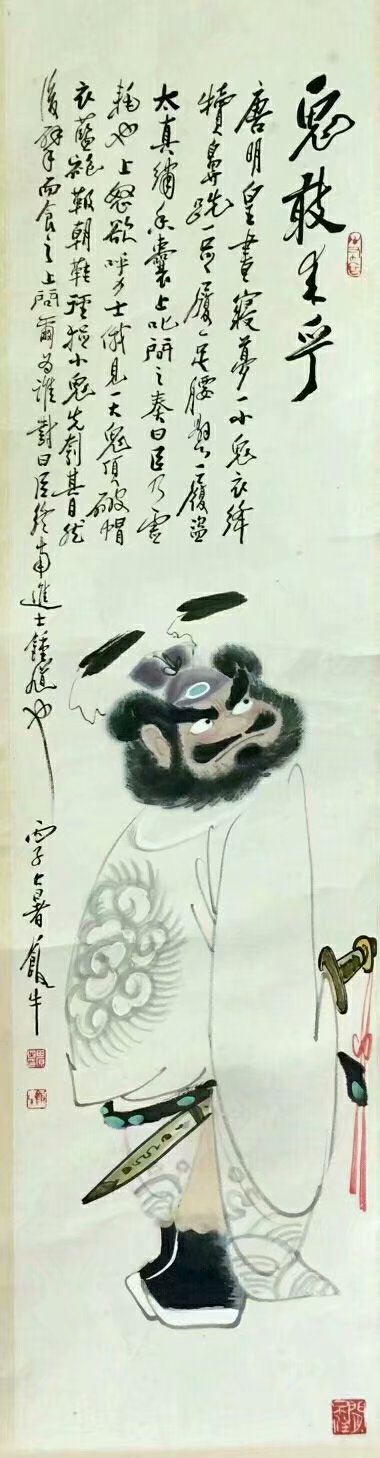 鬼敢来乎
唐明皇晝寢夢一小鬼衣絳
犢鼻跣一足履一足腰懸一履盜
太真繡香囊上叱問之奏曰臣乃虛
耗也上怒欲呼力士俄見一大鬼頂破帽
衣藍袍靸朝鞋徑捉小鬼先刳其目然
後擘而食之上問爾为誰對曰臣終南進士鍾馗也
丙子大暑飯牛